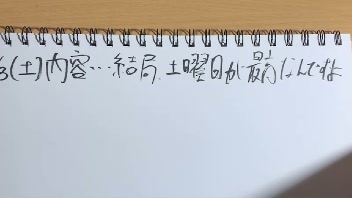 (土)内容…結局、土曜日が最高なんですよ